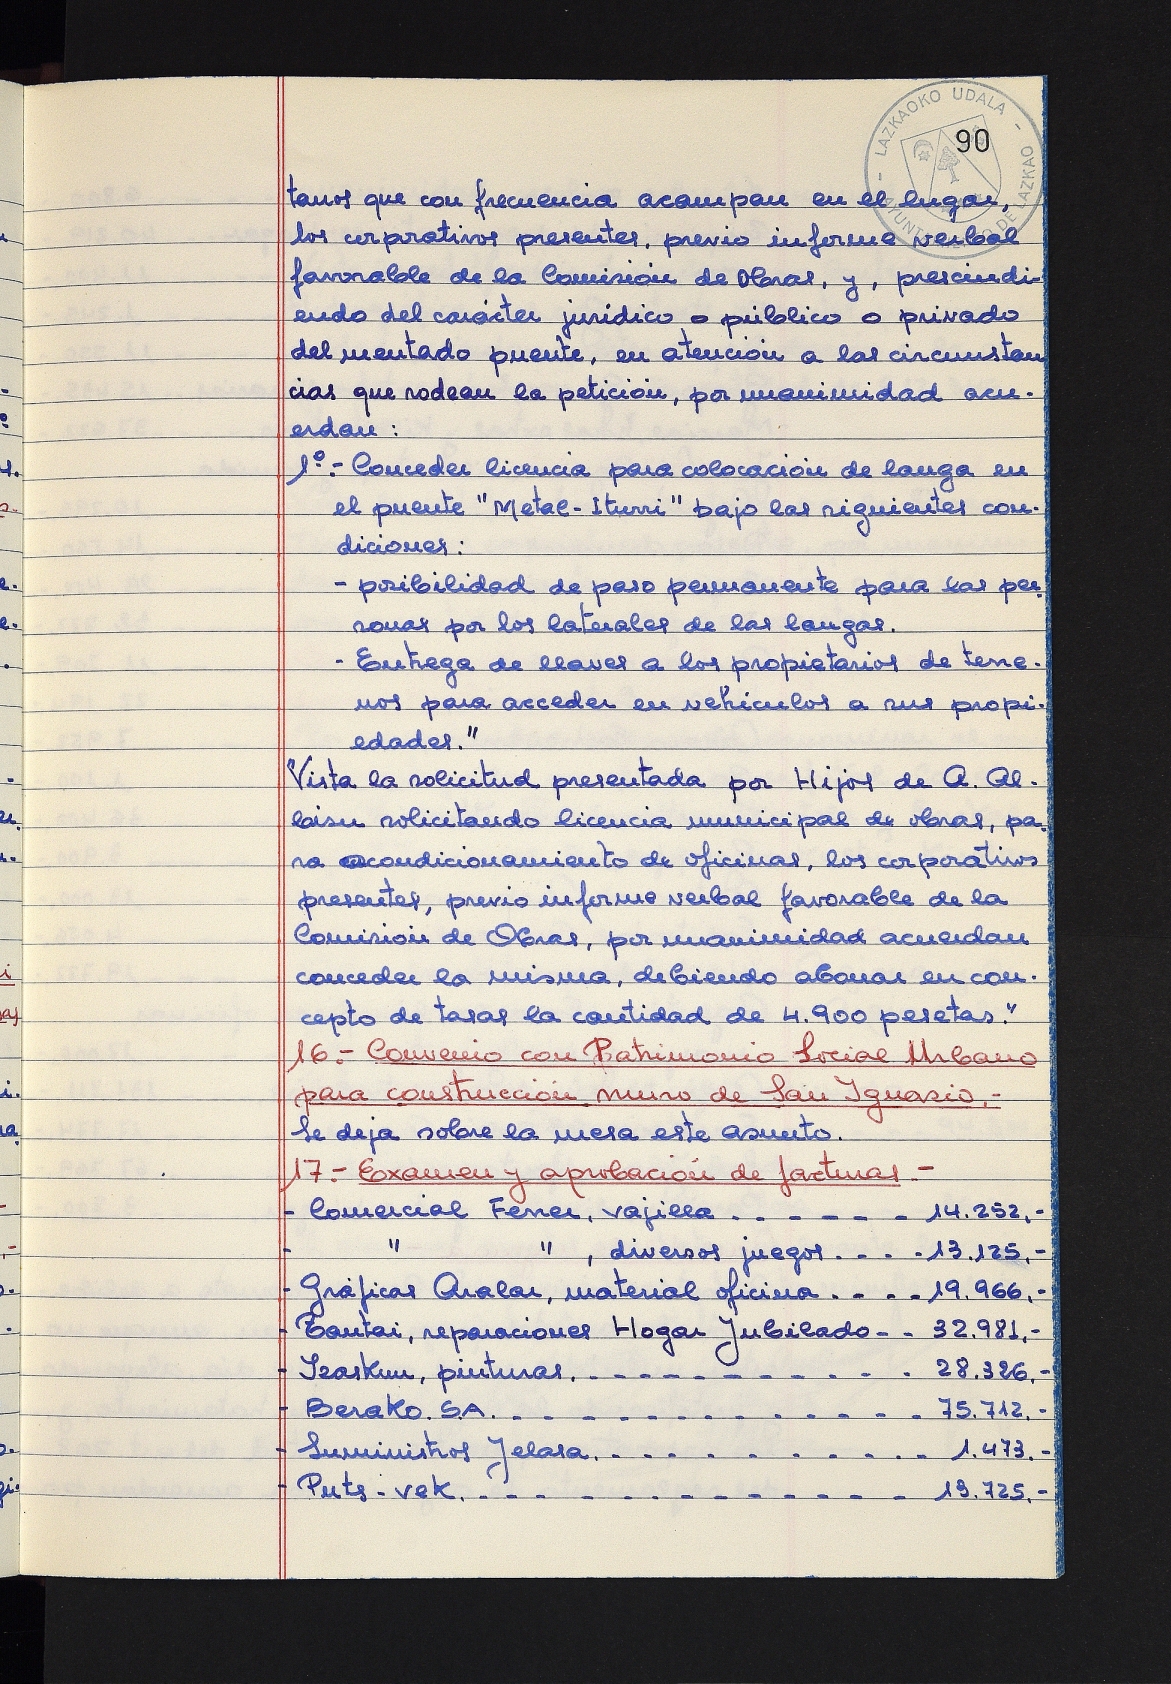 LAZKAOKO UDALA - AYUNTAMIENTO DE LAZKAO -
90
tanos que con frecuencia acampan en el lugar,
los corporativos presentes, previo informe verbal
favorable de la Comisión de Obras, y, prescindi-
endo del carácter jurídico o público o privado
del mentado puente, en atención a las circunstan
cias que rodean la petición, por unanimidad acu-
erdan:
1º.- Conceder licencia para colocación de langa en
el puente "Metal-Iturri" bajo las siguientes con-
diciones:
- posibilidad de paso permanente para las per-
sonas por los laterales de las langas.
- Entrega de llaves a los propietarios de terre-
nos para acceder en vehículos a sus propi-
edades."
"Vista la solicitud presentada por Hijos de A. Al-
baisu solicitando licencia municipal de obras, pa-
ra acondicionamiento de oficinas, los corporativos
presentes, previo informe verbal favorable de la
Comisión de Obras, por unanimidad acuerdan
conceder la misma, debiendo abonar en con-
cepto de tasas la cantidad de 4.900 pesetas."
16.- Convenio con Patrimonio Social Urbano
para construcción muro de San Ignacio.-
Se deja sobre la mesa este asunto.
17.- Examen y aprobación de facturas.-
- Comercial Ferrer, vajilla . - - - - - 14.252,-
- " " , diversos juegos. - - - 13.125,-
- Gráficas Aralar, material oficina . - - - 19.966,-
- Zantai, reparaciones Hogar Jubilado - - 32.981,-
- Izaskun, pinturas. - - - - - - - - - - 28.326,-
- Berako. S.A. - - - - - - - - - - - - 75.712,-
- Suministros Jelasa. - - - - - - - - - 1.473.-
- Puts-vek. - - - - - - - - - - - - - 19.725,-